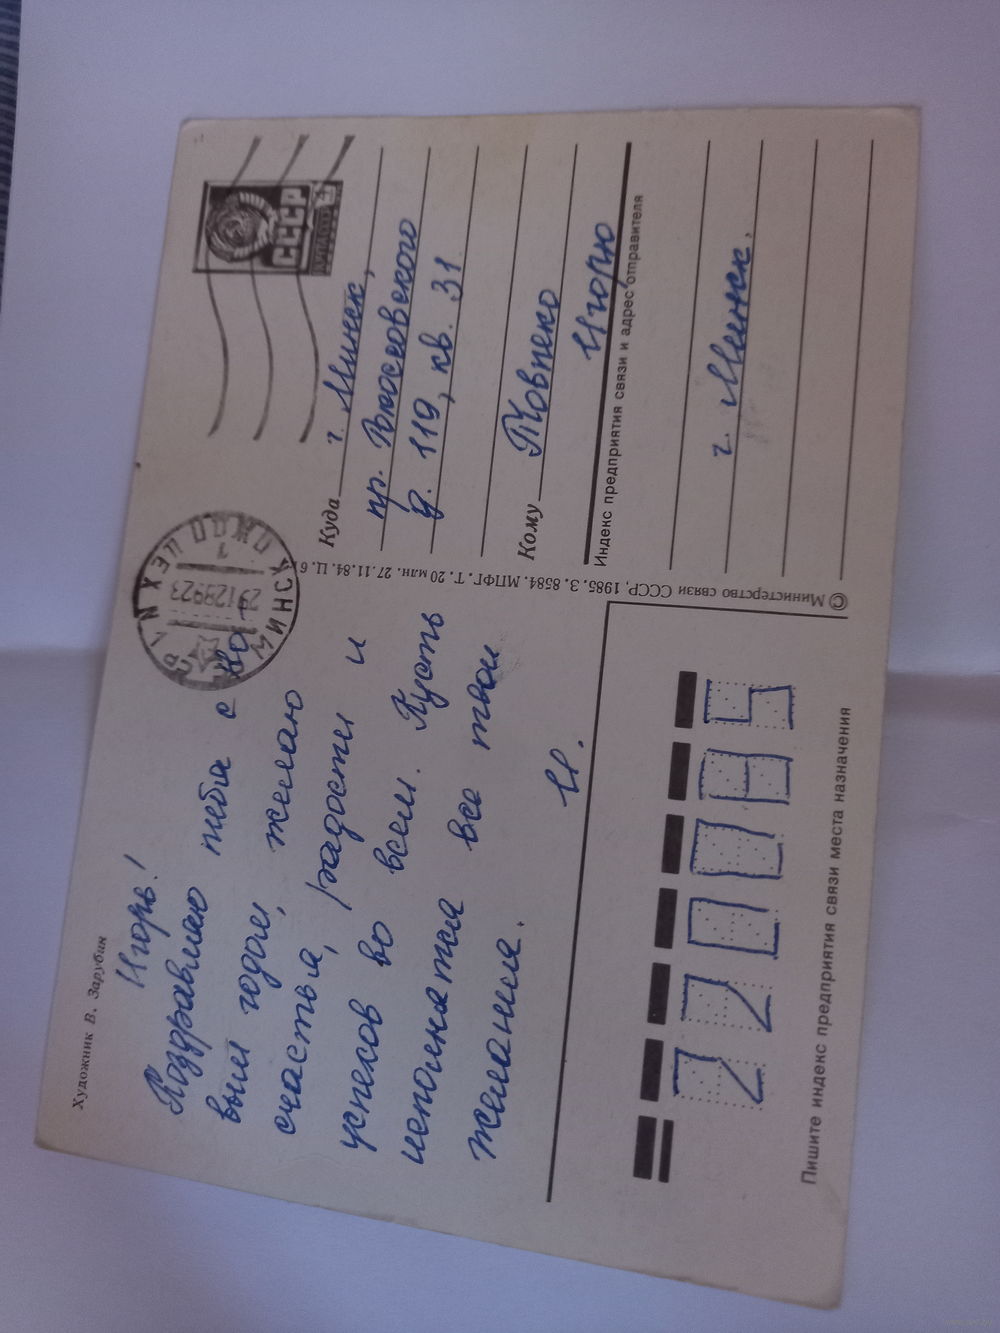 Художник В. Зарубин
Игорь!
Поздравляю тебя с но-
вым годом, желаю
счастья, радости и
успехов во всем. Пусть
исполнятся все твои
желания.
И.
СССР
МИНСК
Куда г. Минск,
пр.
д. 119, кв. 31
Кому
Игорю
Индекс предприятия связи и адрес отправителя
г. Минск.
© Министерство связи СССР, 1985. З. 8584. МПФГ. Т. 20 млн. 27.11.84. Ц. 6
220085
Пишите индекс предприятия связи места назначения